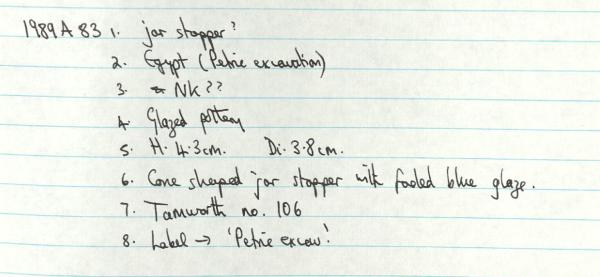 1989 A 83 1. jar stopper?
2. Egypt (Petrie excavation)
3. NK??
4. Glazed pottery
5. H. 4.3cm. Di. 3.8cm.
6. Cone shaped jar stopper with faded blue glaze.
7. Tamworth no. 106
8. Label → 'Petrie excav'.